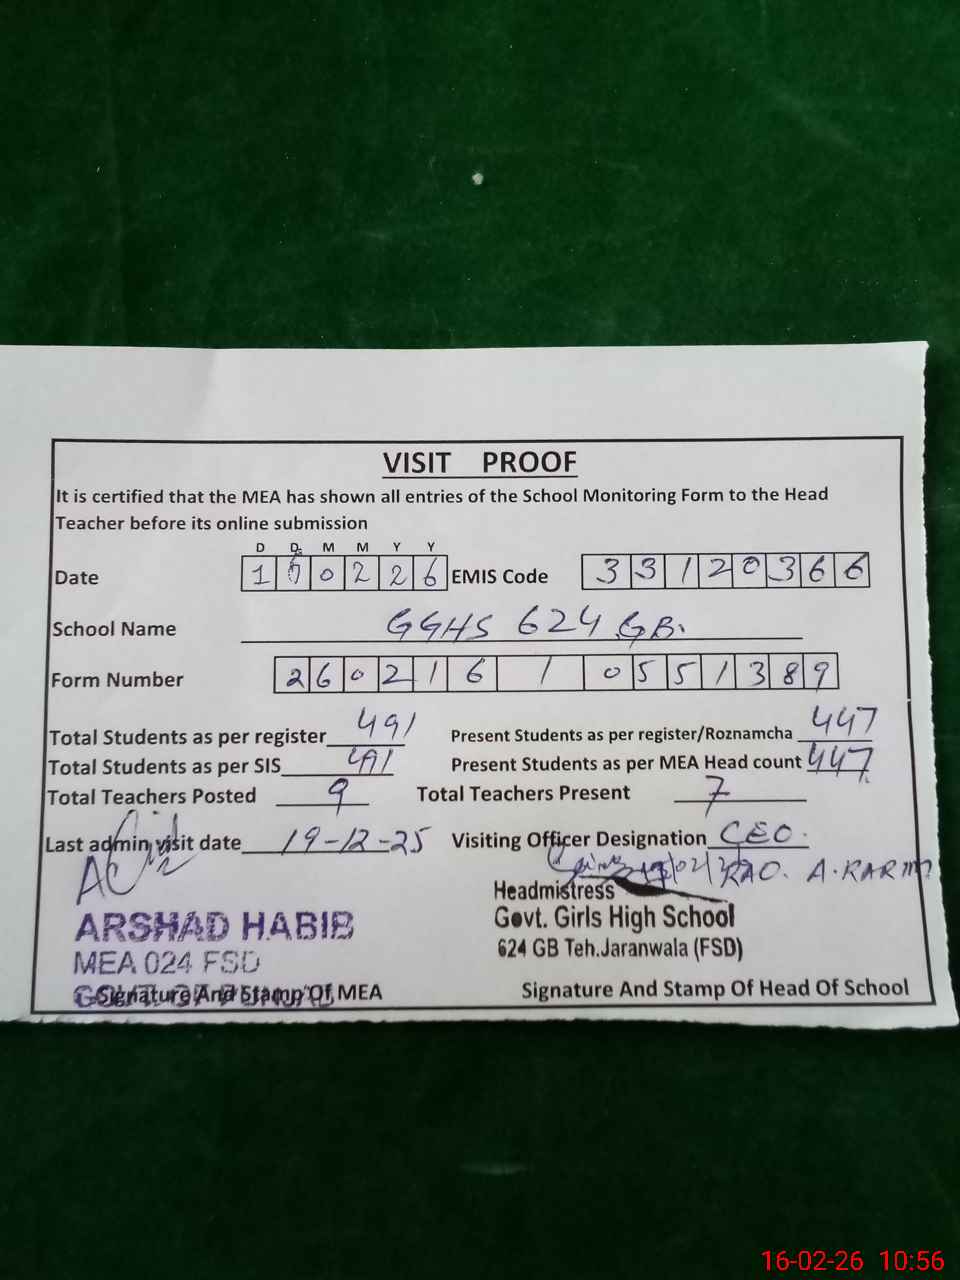 VISIT PROOF
It is certified that the MEA has shown all entries of the School Monitoring Form to the Head
Teacher before its online submission
D D M M Y Y
Date 1 6 0 2 2 6 EMIS Code 3 3 1 2 0 3 6 6
School Name GGHS 624 GB.
Form Number 2 6 0 2 1 6 1 0 5 5 1 3 8 9
Total Students as per register 491 Present Students as per register/Roznamcha 447
Total Students as per SIS 491 Present Students as per MEA Head count 447
Total Teachers Posted 9 Total Teachers Present 7
Last admin visit date 19-12-25 Visiting Officer Designation CEO.
RAO. A. KARIM
Headmistress
ARSHAD HABIB Govt. Girls High School
MEA 024 FSD 624 GB Teh.Jaranwala (FSD)
Signature And Stamp Of MEA Signature And Stamp Of Head Of School
16-02-26 10:56